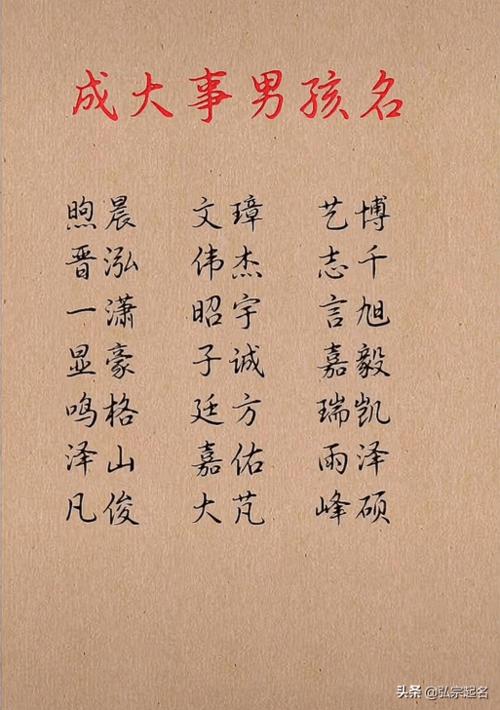 成大事男孩名
煦晨 文璋 艺博
晋泓 伟杰 志千
一潇 昭宇 言旭
显豪 子诚 嘉毅
鸣格 廷方 瑞凯
泽山 嘉佑 雨泽
凡俊 大芃 峰硕
头条 @弘宗起名